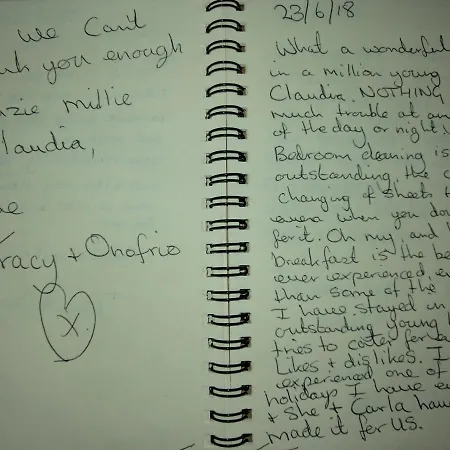 We Can't
you enough
millie
laudia,
racy + Onofrio
X.
23/6/18
What a wonderful
in a million young
Claudia. NOTHING
much trouble at an
of the day or night.
Bedroom cleaning is
outstanding, the c
changing of sheets t
when you do
for it. Oh my, and
breakfast is the be
ever experienced, e
than some of the
I have stayed in
outstanding young
tries to cater for
Likes + dislikes. I
experienced one of
holidays I have e
+ She + Carla hav
made it for US.